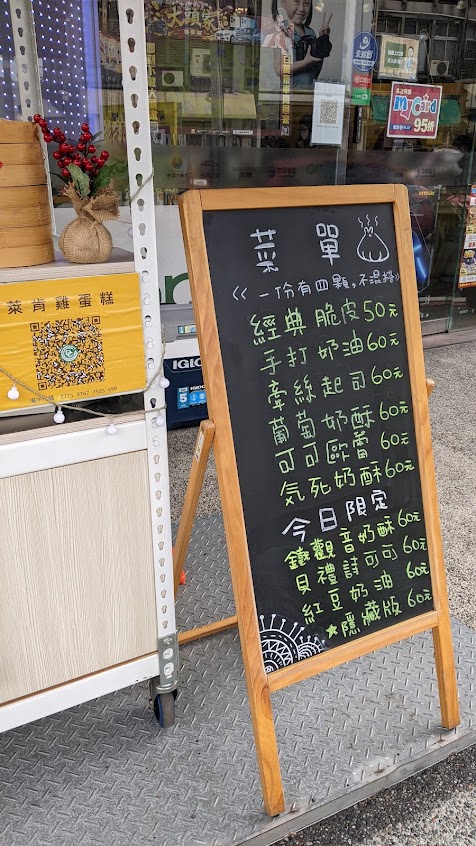 菜單
<<一份有四顆,不混搭>>
經典脆皮50元
手打奶油60元
牽絲起司60元
葡萄奶酥60元
可可歐蕾60元
気死奶酥60元
今日限定
鐵觀音奶酥60元
貝禮詩可可60元
紅豆奶油60元
★隱藏版60元
萊肯雞蛋糕
IGLOO
my Card
95折